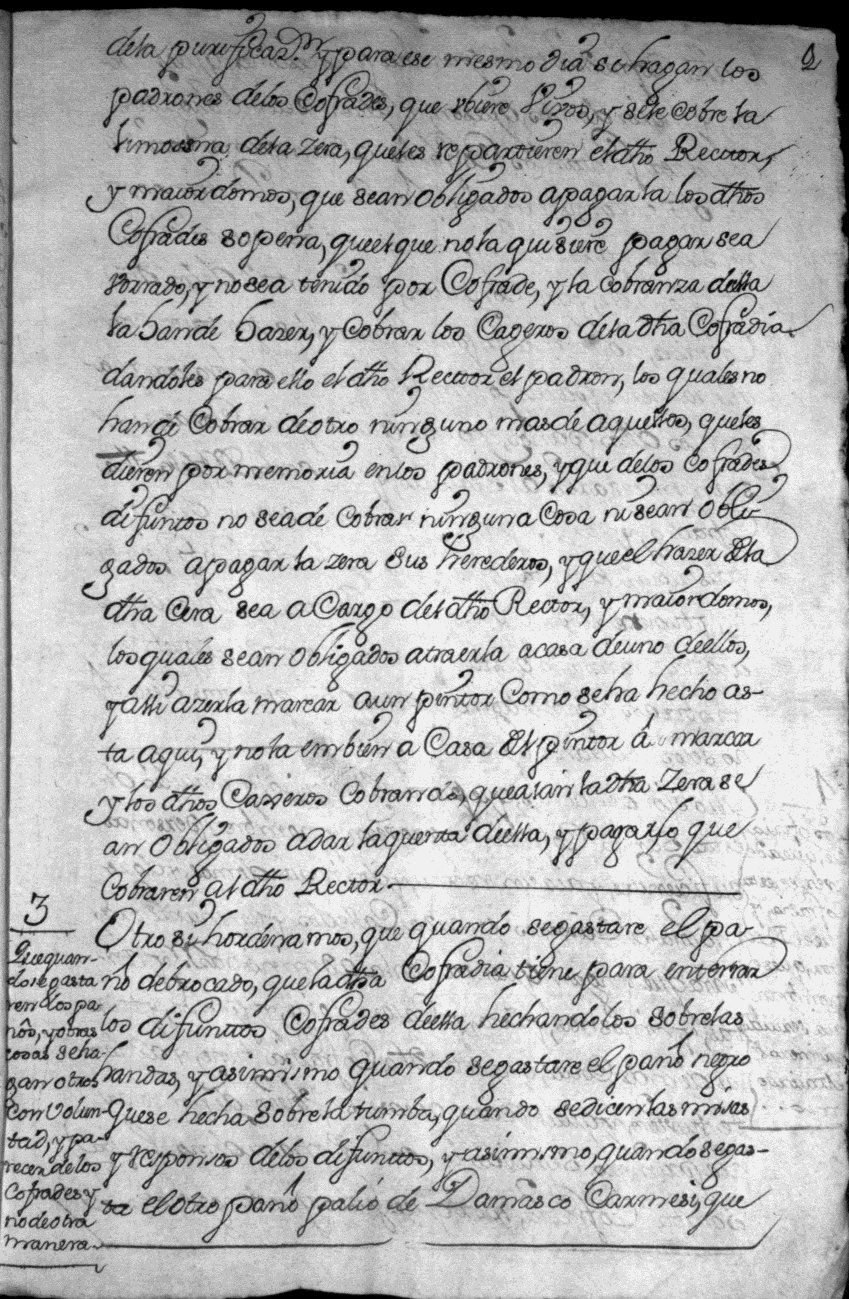 2
dela purificaz.on y para ese mesmo dia se hagan los
padrones delos Cofrades, que vbiere Vivos, y sele Cobre la
limosna dela Zera, queles repartieren el dho Rector,
y maiordomos, que sean obligados apagarla los dhos
Cofrades sopena, que el que nola quisiere pagar sea
vorrado, y no sea tenido por Cofrade, y la cobranza della
la hande hazer, y Cobrar los Cageros dela dha Cofradia
dandoles para ello el dho Rector el padron, los quales no
hande Cobrar de otro ninguno mas de aquellos, queles
dieren por memoria enlos padrones, y que delos Cofrades
difuntos no seade Cobrar ninguna Cosa ni sean obli-
gados apagar la zera sus herederos, y que el hazer dela
dha Cera sea a Cargo del dho Rector, y maiordomos,
los quales sean obligados atraerla acasa de uno deellos,
y alli azerla marcar aun pintor Como seha hecho as-
ta aqui, y nola embien a Casa del pintor á marcar
y los dhos Caxeros Cobrando, que asi la dha Zera se
an obligados adar la quenta deella, y pagar, lo que
Cobraren al dho Rector
3
Otro si hordenamos, que quando segastare el pa-
ño debrocado, que la dha Cofradia tiene para enterrar
los difunttos Cofrades deella hechandolos sobrelas
handas, y asimismo quando segastare el paño negro
Quese hecha sobrela tumba, quando sedicen las misas
y responsos delos difunttos, y asimismo, quando segas-
ta el otro paño palio de Damasco Carmesi, que
Que quan-
do se gasta
ren dos pa-
ños, y otras
cosas seha-
gan otros
con volun-
tad, y pa-
recer delos
Cofrades y
no de otra
manera